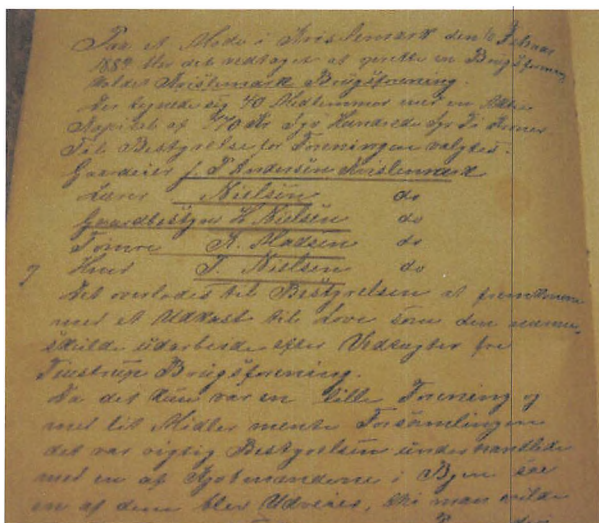 Paa et Møde i Kristlemark den 6 Februar
1889 blev det vedtaget at oprette en Brugsforening
kaldet Kristlemark Brugsforening.
Der tegnede sig 40 Medlemmer med en
Kapital af Kr Hundrede Ti Kroner
Til Bestyrelse for Foreningen valgtes.
Gaardeier J. P. Andersen Kristlemark
Lærer Nielsen do
Gaardbestyr H. Nielsen do
Tømre R. Madsen do
og Huus T. Nielsen do
Det overlodes til Bestyrelsen at fremkomme
med et Udkast til Love som den
skulde udarbeide efter Vedtægter fra
Brugsforening.
Da det kun var en lille Forening og
med lidt Midler mente Forsamlingen
det var vigtig Bestyrelsen underhandlede
med en af Kjøbmændene i Byen
en af dem blev Udviser, thi man vilde